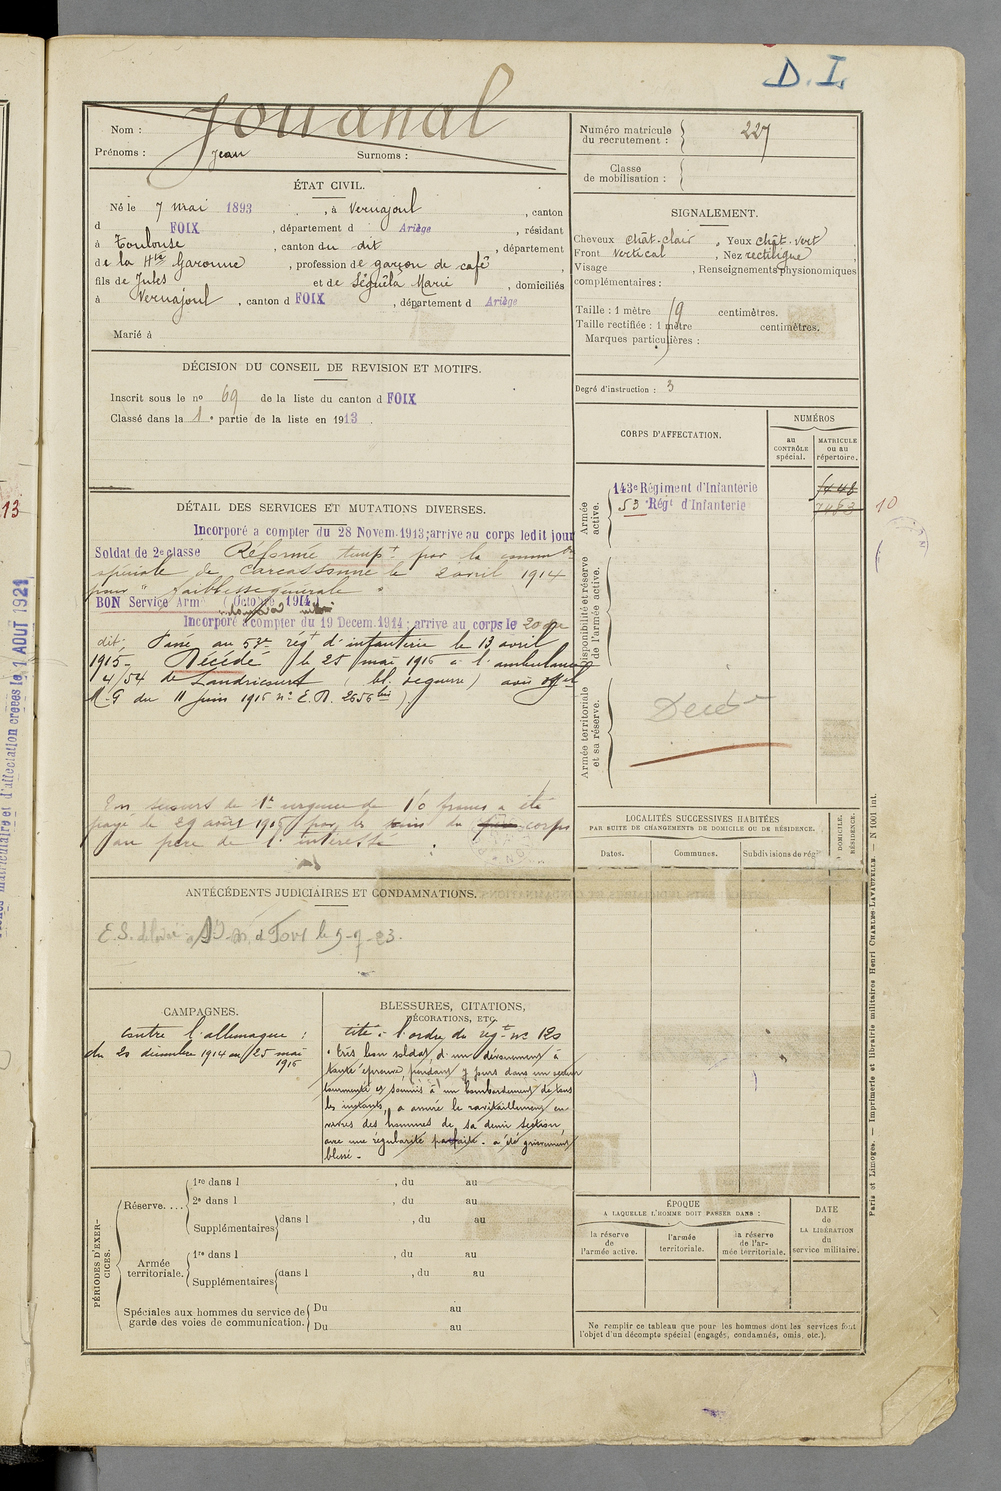 D. I.
Jouanal
Nom :
Prénoms : Jean Surnoms :
Numéro matricule du recrutement : 227
Classe de mobilisation :
ÉTAT CIVIL.
Né le 7 mai 1893 , à Vernajoul , canton
d FOIX , département d Ariège , résidant
à Toulouse , canton du dit , département
de la Hte Garonne , profession de garçon de café ,
fils de Jules et de Séguéla Marie , domiciliés
à Vernajoul , canton d FOIX , département d Ariège
Marié à
SIGNALEMENT.
Cheveux chât-clair , Yeux chât-vert
Front Vertical , Nez rectiligne ,
Visage , Renseignements physionomiques
complémentaires :
Taille : 1 mètre 79 centimètres.
Taille rectifiée : 1 mètre centimètres.
Marques particulières :
Degré d'instruction : 3
DÉCISION DU CONSEIL DE REVISION ET MOTIFS.
Inscrit sous le no 69 de la liste du canton d FOIX
Classé dans la 1e partie de la liste en 1913 .
CORPS D'AFFECTATION.
NUMÉROS
au CONTRÔLE spécial.
MATRICULE ou au répertoire.
Armée active.
143e Régiment d'Infanterie
53 Régt d'Infanterie
7483
10
13
Disponibilité et réserve de l'armée active.
Armée territoriale et sa réserve.
Décédé
DÉTAIL DES SERVICES ET MUTATIONS DIVERSES.
Incorporé a compter du 28 Novem. 1913; arrive au corps ledit jour
Soldat de 2e classe Réformé tempt par la commton
spéciale de Carcassonne le 2 avril 1914
pour " faiblesse générale "
BON Service Armé (Octobre 1914)
Incorporé a compter du 19 Decem. 1914; arrive au corps le 20 du
dit; Passé au 53e régt d'infanterie le 13 avril
1915- Décédé le 25 mai 1916 à l'ambulance
4/54 de Landricourt ( bl. de guerre) avis offel
M.G du 11 juin 1916 no E.D. 2656 bis ).
Un secours de 1re urgence de 150 francs a été
payé le 29 août 1916 par les soins du corps
au père de l'intéressé.
LOCALITÉS SUCCESSIVES HABITÉES
PAR SUITE DE CHANGEMENTS DE DOMICILE OU DE RÉSIDENCE.
Dates. Communes. Subdivisions de rég
DOMICILE. RÉSIDENCE.
ANTÉCÉDENTS JUDICIAIRES ET CONDAMNATIONS.
CAMPAGNES.
contre l'allemagne :
du 20 décembre 1914 au 25 mai
1916
BLESSURES, CITATIONS,
DÉCORATIONS, ETC.
cité à l'ordre du régt no 120
" très bon soldat, d'un dévouement à
toute épreuve, pendant 7 jours dans un secteur
tourmenté et soumis à un bombardement de tous
les instants, a assuré le ravitaillement en
vivres des hommes de sa demi section,
avec une régularité parfaite - a été grièvement
blessé -
PÉRIODES D'EXERCICES.
Réserve....
1re dans l , du au
2e dans l , du au
Supplémentaires dans l , du au
Armée territoriale.
1re dans l , du au
Supplémentaires dans l , du au
Spéciales aux hommes du service de garde des voies de communication.
Du au
Du au
ÉPOQUE
A LAQUELLE L'HOMME DOIT PASSER DANS :
la réserve de l'armée active.
l'armée territoriale.
la réserve de l'armée territoriale.
DATE de LA LIBÉRATION du service militaire.
Ne remplir ce tableau que pour les hommes dont les services font
l'objet d'un décompte spécial (engagés, condamnés, omis, etc.).
Paris et Limoges. — Imprimerie et librairie militaires Henri CHARLES-LAVAUZELLE. — N 1001 int.
matriculaire et d'affectation créées le 1 AOUT 1921